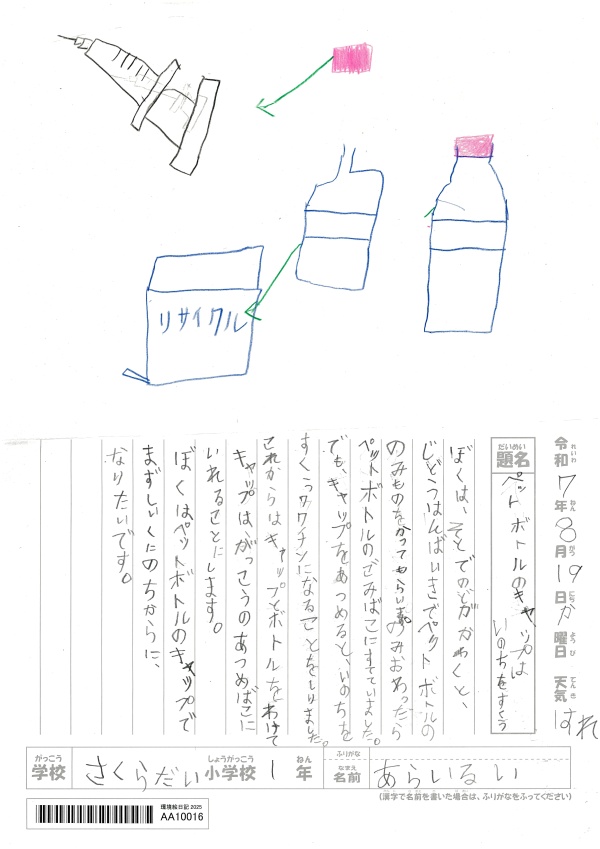 リサイクル
令和7年8月19日か曜日 天気はれ
れいわ ねん がつ にち ようび てんき
だいめい
題名
ペットボトルのキャップは
いのちをすくう
ぼくは、そとでのどがかわくと、
じどうはんばいきでペットボトルの
のみものをかってもらいます。のみおわったら
ペットボトルのごみばこにすてていました。
でも、キャップをあつめると、いのちを
すくうワクチンになることをしりました。
これからはキャップとボトルをわけて
キャップは、がっこうのあつめばこに
いれることにします。
ぼくはペットボトルのキャップで
まずしいくにのちからに、
なりたいです。
がっこう しょうがっこう ねん
学校 さくらだい小学校 1年
ふりがな
なまえ
名前 あらいるい
(漢字で名前を書いた場合は、ふりがなをふってください)
環境絵日記 2025
AA10016